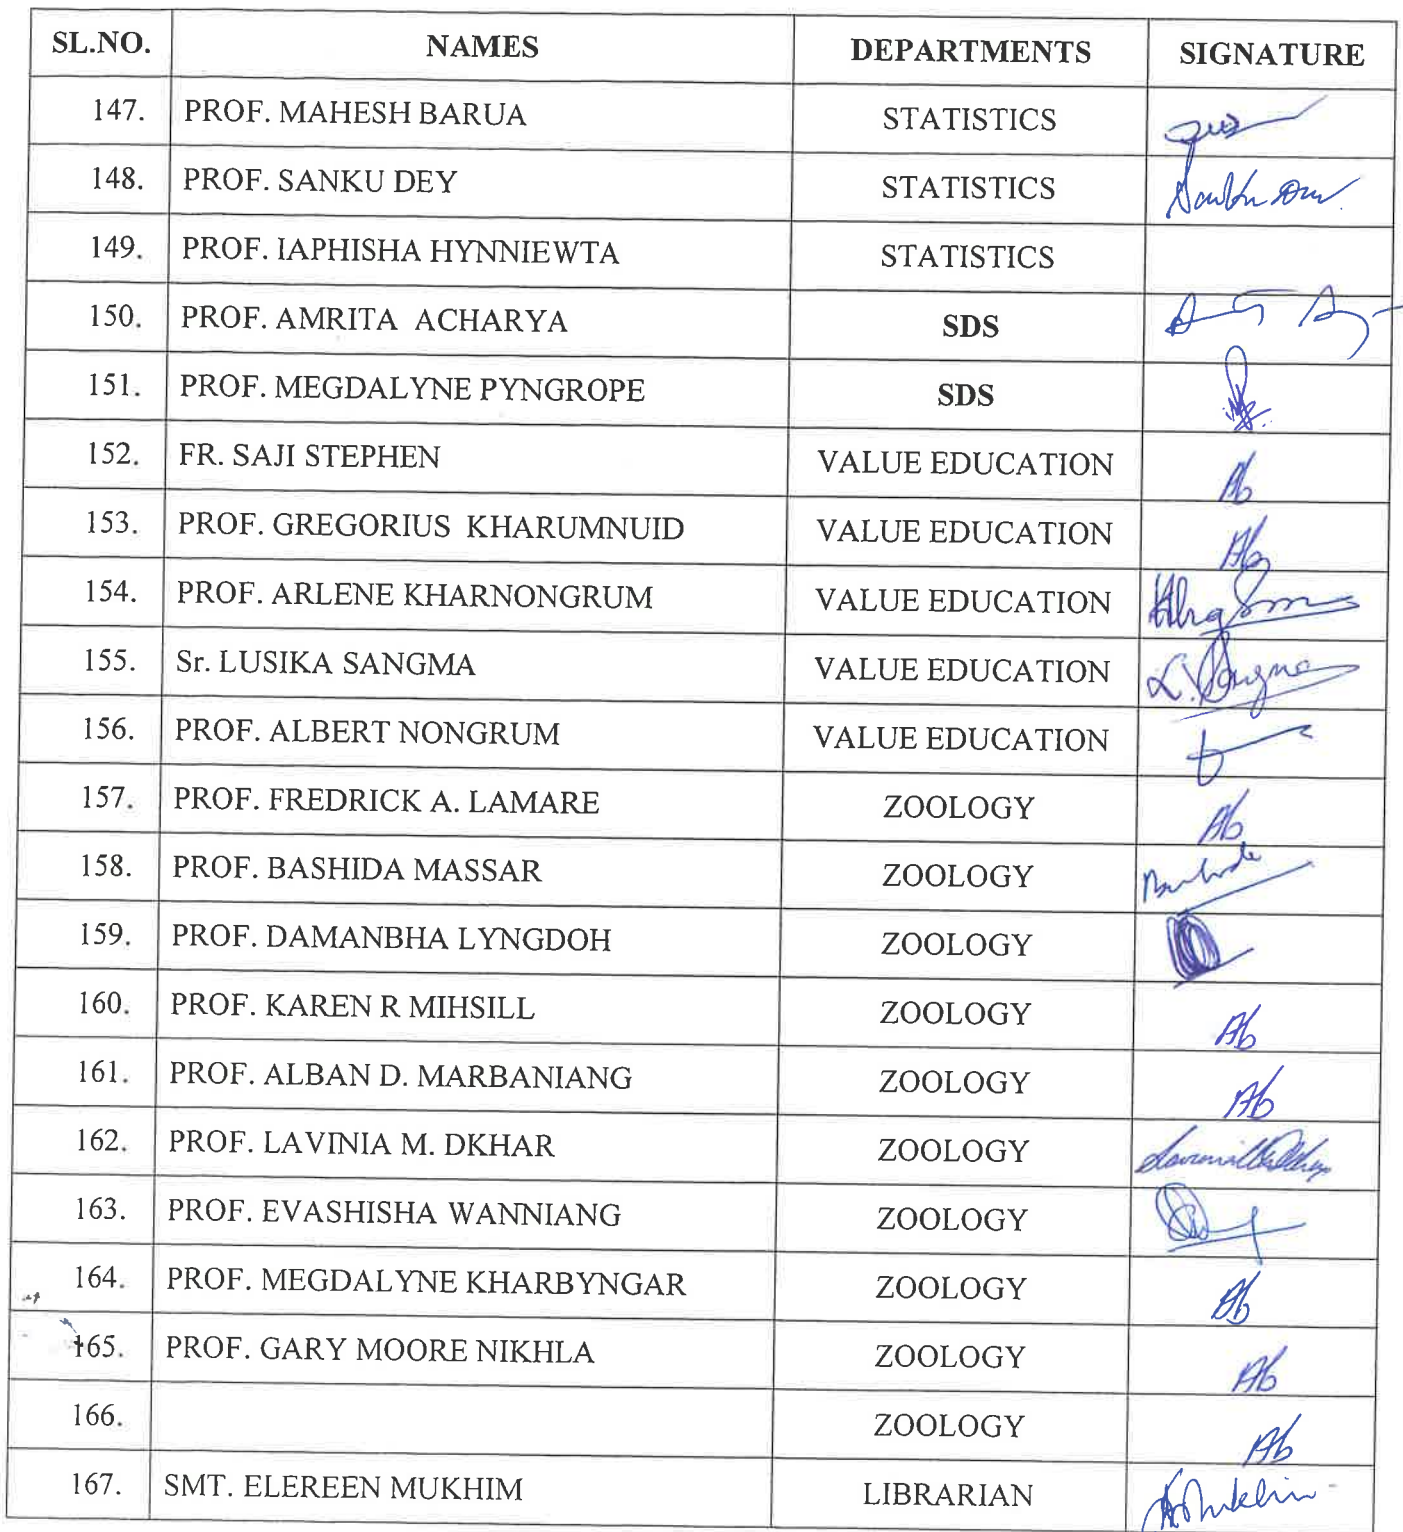 SL.NO. NAMES DEPARTMENTS SIGNATURE
147. PROF. MAHESH BARUA STATISTICS
148. PROF. SANKU DEY STATISTICS
149. PROF. IAPHISHA HYNNIEWTA STATISTICS
150. PROF. AMRITA ACHARYA SDS
151. PROF. MEGDALYNE PYNGROPE SDS
152. FR. SAJI STEPHEN VALUE EDUCATION Ab
153. PROF. GREGORIUS KHARUMNUID VALUE EDUCATION Ab
154. PROF. ARLENE KHARNONGRUM VALUE EDUCATION
155. Sr. LUSIKA SANGMA VALUE EDUCATION L. Sangma
156. PROF. ALBERT NONGRUM VALUE EDUCATION
157. PROF. FREDRICK A. LAMARE ZOOLOGY Ab
158. PROF. BASHIDA MASSAR ZOOLOGY
159. PROF. DAMANBHA LYNGDOH ZOOLOGY
160. PROF. KAREN R MIHSILL ZOOLOGY Ab
161. PROF. ALBAN D. MARBANIANG ZOOLOGY Ab
162. PROF. LAVINIA M. DKHAR ZOOLOGY
163. PROF. EVASHISHA WANNIANG ZOOLOGY
164. PROF. MEGDALYNE KHARBYNGAR ZOOLOGY Ab
165. PROF. GARY MOORE NIKHLA ZOOLOGY Ab
166. ZOOLOGY Ab
167. SMT. ELEREEN MUKHIM LIBRARIAN